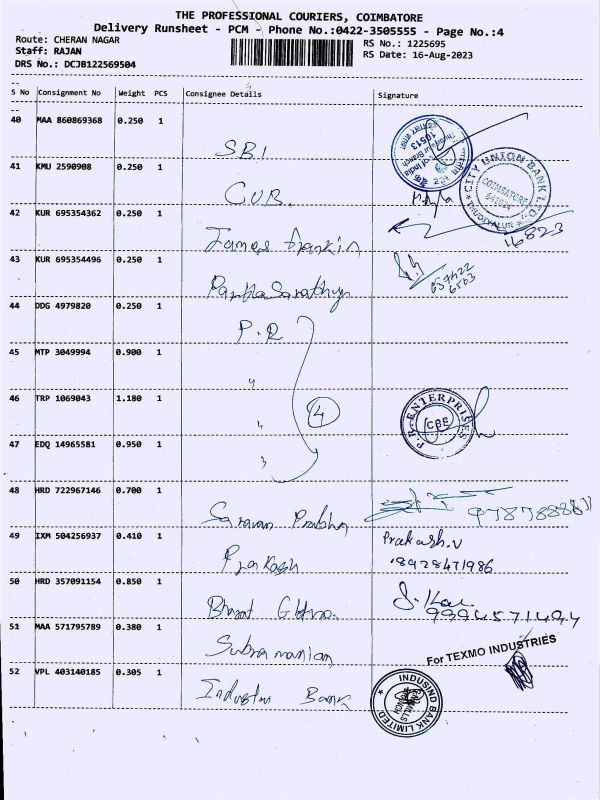 THE PROFESSIONAL COURIERS, COIMBATORE
Delivery Runsheet - PCM - Phone No.:0422-3505555 - Page No.:4
Route: CHERAN NAGAR
RS No.: 1225695
Staff: RAJAN
RS Date: 16-Aug-2023
DRS No.: DCJB122569504
S No Consignment No Weight PCS Consignee Details Signature
40 MAA 860869368 0.250 1 SBI
10513
41 KMU 2590908 0.250 1 CUB
CITY UNION BANK LTD.
COIMBATORE
THUDIYALUR
42 KUR 695354362 0.250 1 James
16823
43 KUR 695354496 0.250 1 Parthasarathy
44 DDG 4979820 0.250 1 P.R
45 MTP 3049994 0.900 1 "
46 TRP 1069043 1.180 1 "
4
P.R. ENTERPRISES
CBE
47 EDQ 14965581 0.950 1 "
48 HRD 722967146 0.700 1 Saravan Prabhu
49 IXM 504256937 0.410 1 Prakash Prakash.V
8928471986
50 HRD 357091154 0.850 1 Bharat
51 MAA 571795789 0.380 1 Subramanian
For TEXMO INDUSTRIES
52 VPL 403140185 0.305 1 Industan Bank
INDUSIND BANK LIMITED